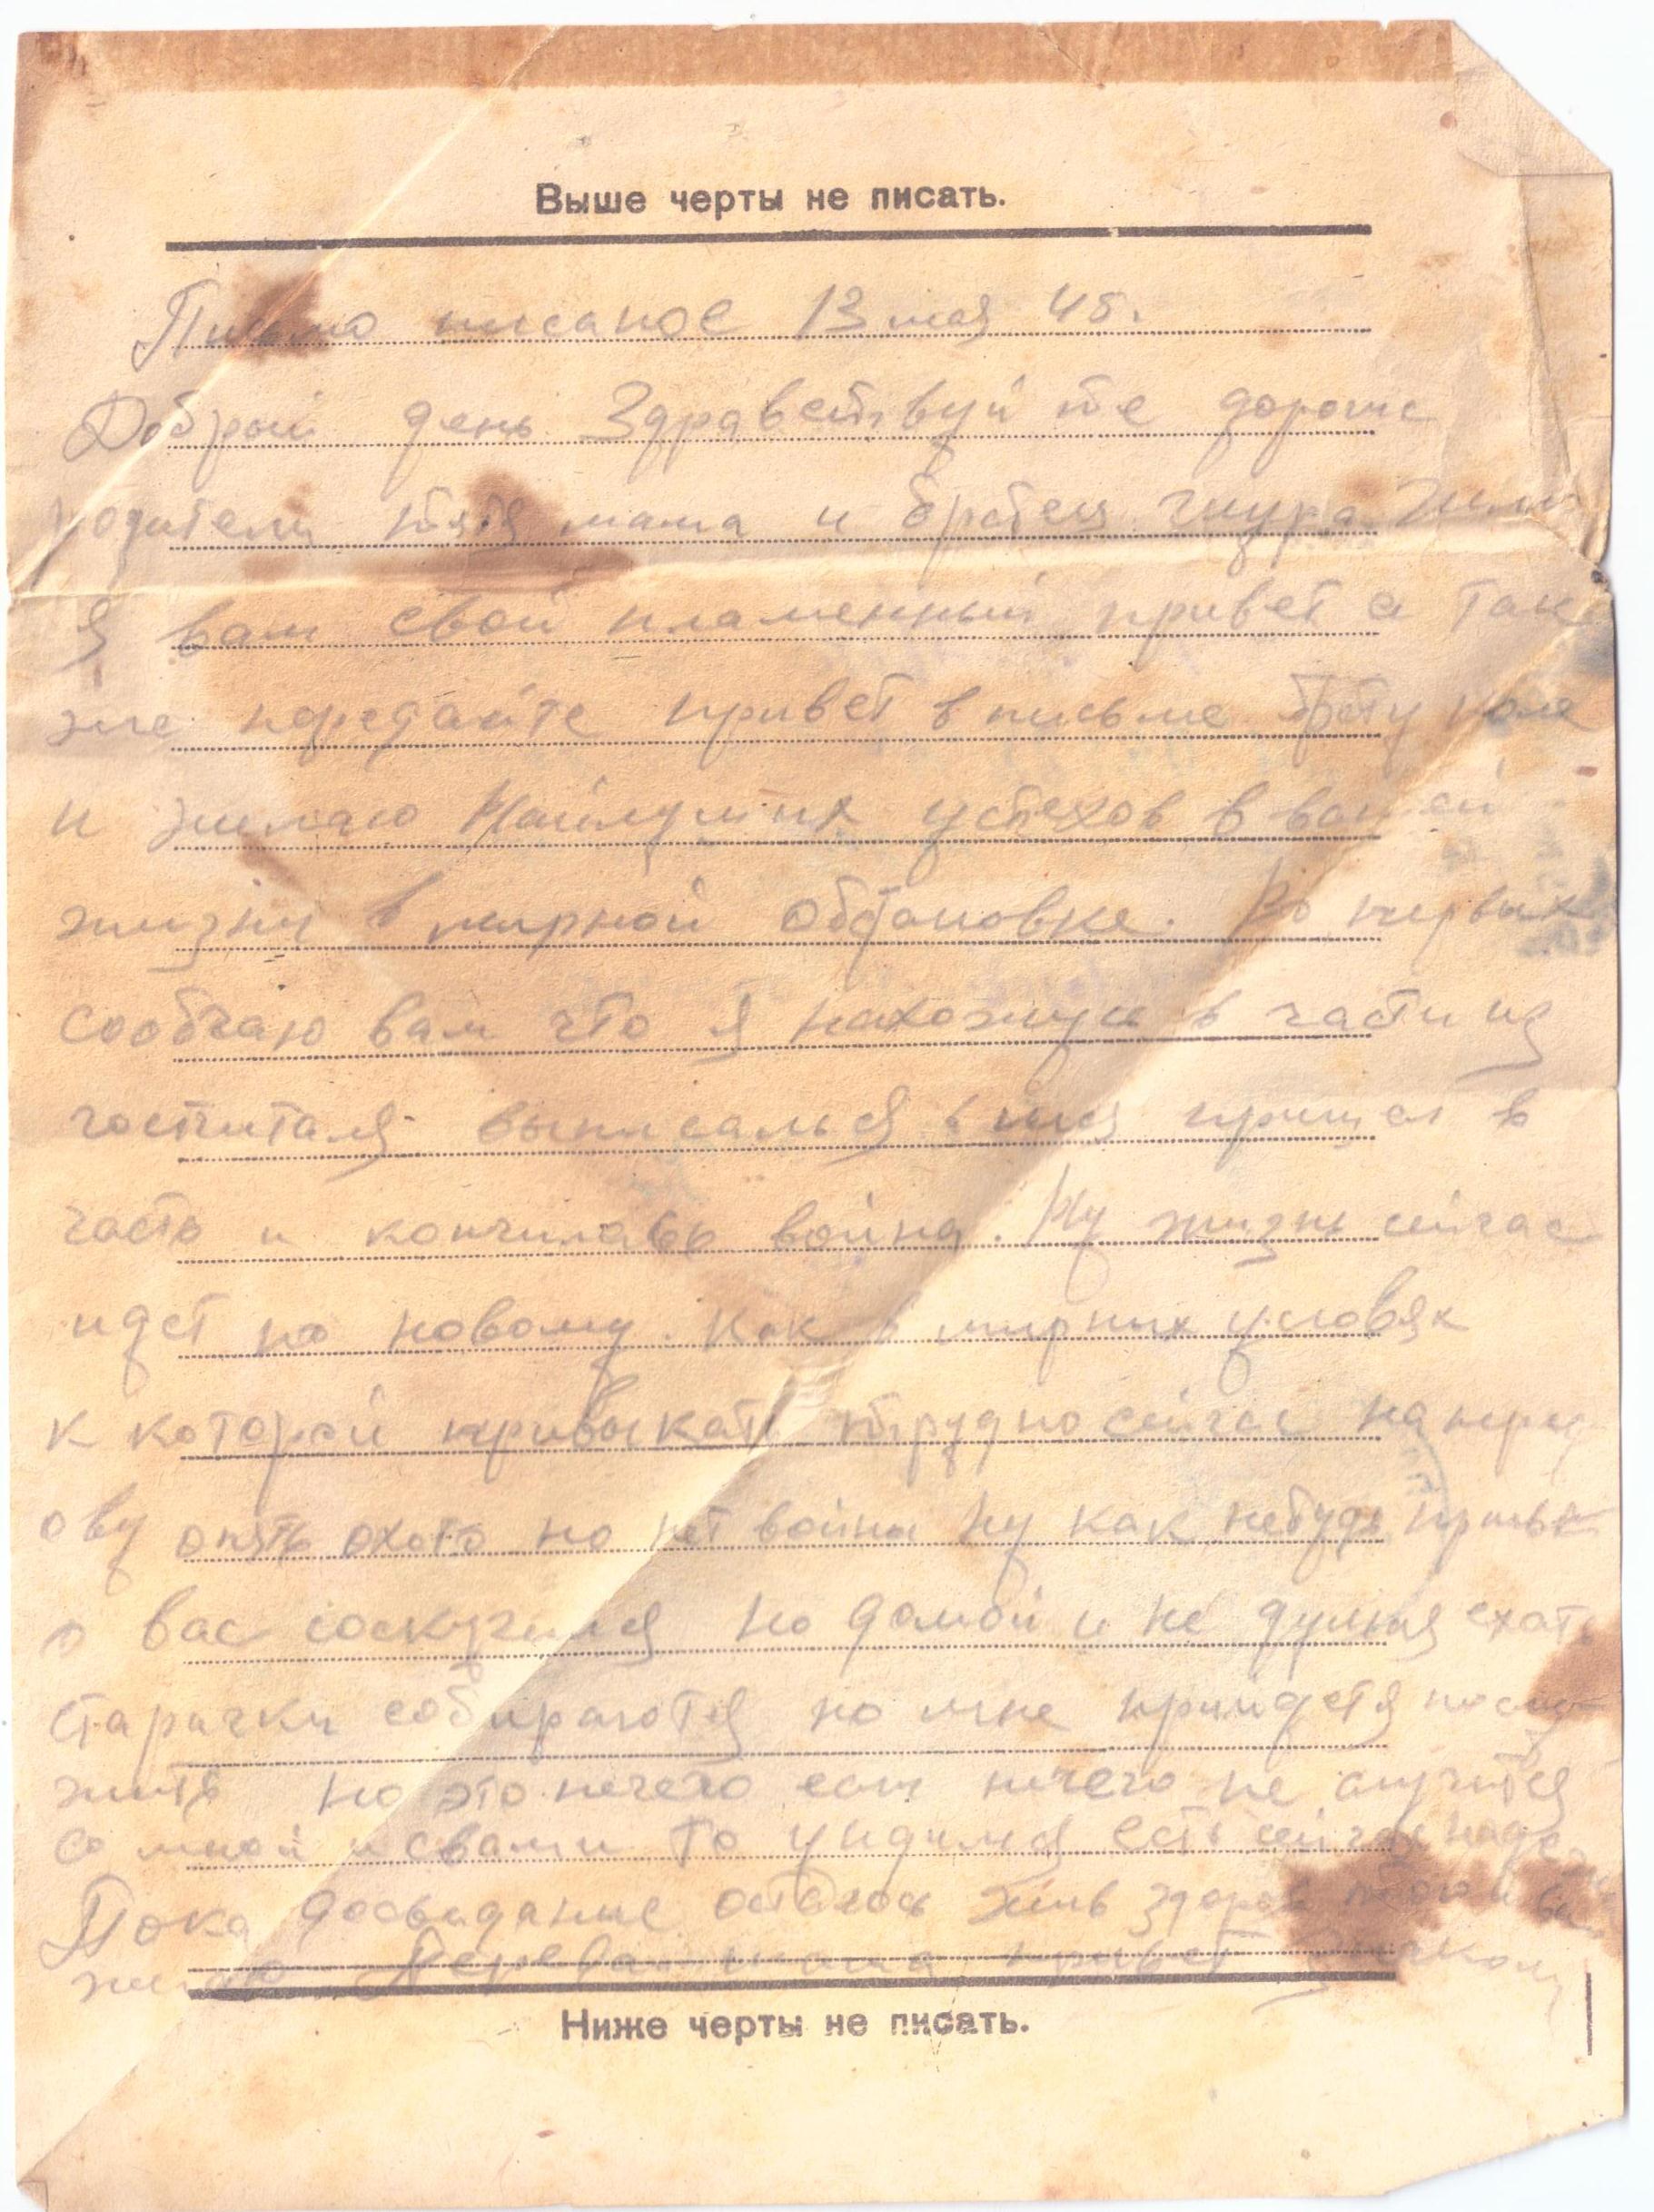 Выше черты не писать.
Письмо писаное 13 мая 45.
Добрый день Здравствуй те дороше
родители тятя мама и братец шура
Я вам свой пламенный привет а так
же передайте привет в письме брату коле
и желаю Найлутших успехов в вашей
жизни в мирной обстановке. Во первых
сообчаю вам что я нахожуся в части из
госпиталя выписалься пришел в
часть и кончилась война. Ну жизнь сейчас
идет по новому. как в мирных условях
к которой привыкать трудно сейчас на перед
ову опять охота но нет войны Ну как небудь
о вас соскучился но домой и не думая ехать
старички собираются но мне приидется послу-
жить но это нечего если нечего не случится
со мной и свами то увидимся есть сейчас
Пока досведание остаюсь жив здоров
желаю привет
Ниже черты не писать.